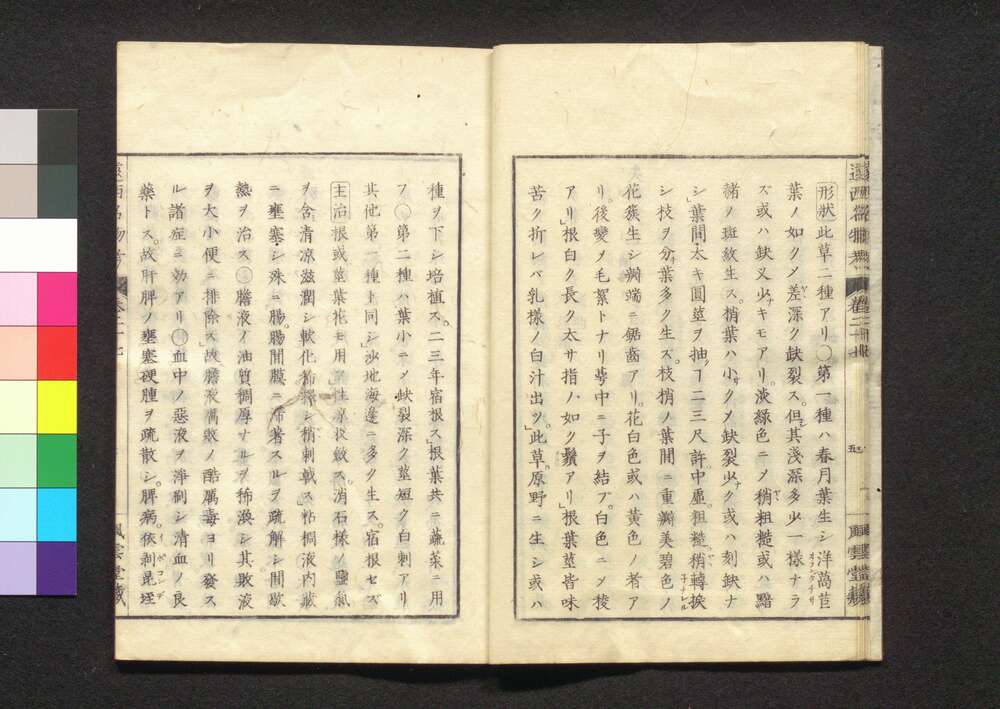 形状此草二種アリ○第一種ハ春月葉生シ洋萵苣
オランダチサ
葉ノ如クメ差深ク缺裂ス。但其淺深多少一樣ナラ
ズ或ハ缺叉少キモアリ。淡綠色ニメ稍粗糙或ハ黯
緒ノ斑紋生ス。梢葉ハ小クメ缺裂少ク或ハ刻缺ナ
シ」葉間太キ圓莖ヲ抽ヿ二三尺許中虛。粗糙。稍轉捩
シ枝ヲ分葉多ク生ス。枝梢ノ葉間ニ重瓣美碧色ノ
花簇生シ瓣端ニ鋸齒アリ。花白色或ハ黃色ノ者ア
リ。後變メ毛絮トナリ萼中ニ子ヲ結ブ。白色ニメ稜
アリ」根白ク長ク太サ指ノ如ク鬚アリ」根葉莖皆味
苦ク折レバ乳樣ノ白汁出ヅ」此草。原野ニ生シ或ハ
種ヲ下シ培植ス。二三年宿根ス」根葉共ニ蔬菜ニ用
フ○第二種ハ葉小ニメ缺裂深ク莖短ク白刺アリ
其他第一種ト同シ」沙地海邊ニ多ク生ス。宿根セズ
主治根或莖葉花モ用フ性凉收斂ス。消石樣ノ鹽氣
ヲ含清凉滋潤シ軟化稀釋シ稍刺戟ス」粘稠液内臟
ニ壅塞シ殊ニ腸。腸間膜ニ滯著スルヲ疏解シ間歇
熱ヲ治ス○膽液ノ油質稠厚ナルヲ稀渙シ其敗液
ヲ大小便ニ排除ス」故膽液腐敗ノ酷厲毒ヨリ發ス
ル諸症ニ効アリ○血中ノ惡液ヲ淨刷シ清血ノ良
藥トス。故肝脾ノ壅塞硬腫ヲ疏散シ。脾病。依剥昆垤
イポコンデ
風雲堂藏